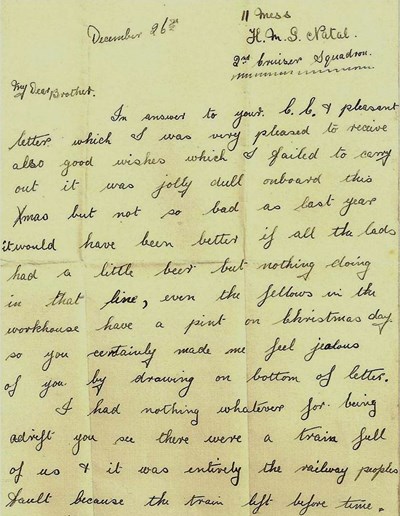 11 Mess
December 26th
H.M.S. Natal.
2nd Cruiser Squadron.
My Dear Brother.
In answer to your. C.C. & pleasant
letter which I was very pleased to receive
also good wishes which I failed to carry
out it was jolly dull onboard this
Xmas but not so bad as last year
it would have been better if all the lads
had a little beer but nothing doing
in that line, even the fellows in the
workhouse have a pint on Christmas day
so you certainly made me feel jealous
of you by drawing on bottom of letter.
I had nothing whatever for being
adrift you see there were a train full
of us & it was entirely the railway peoples
fault because the train left before time.